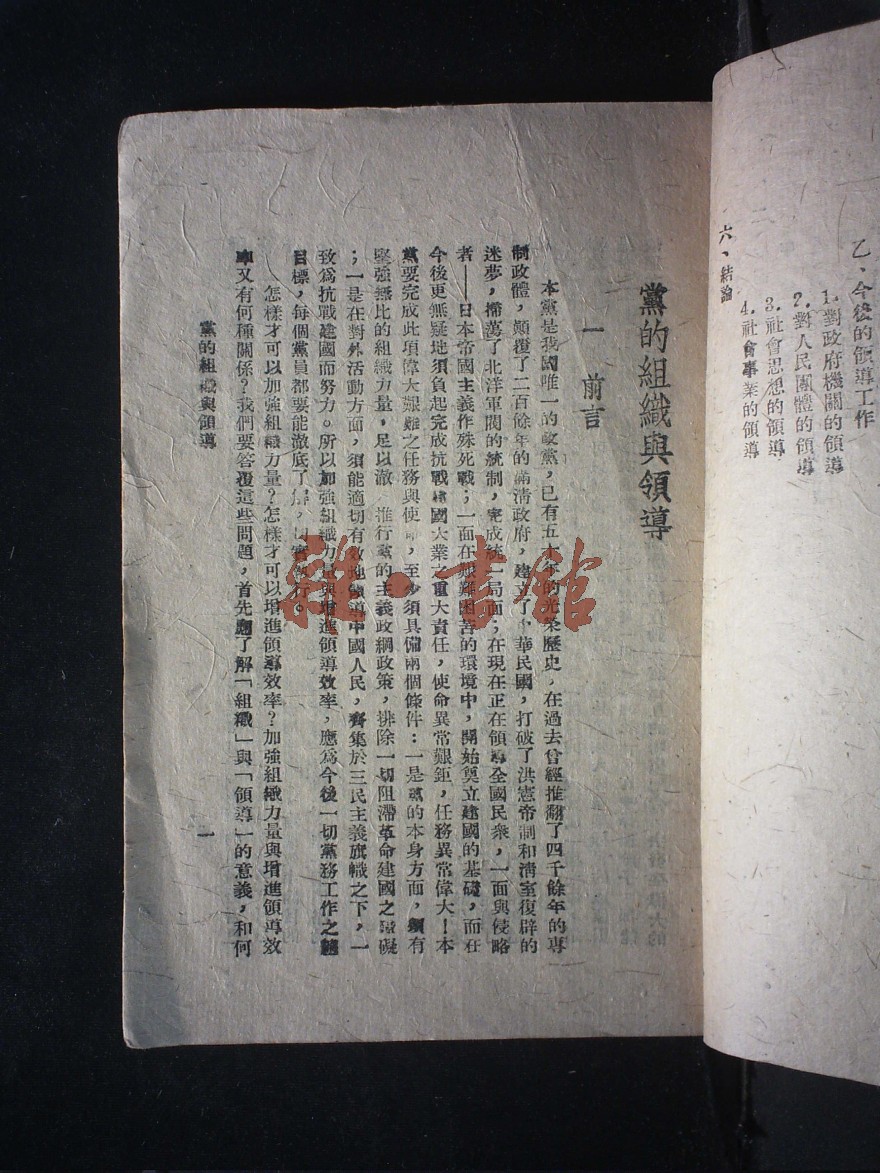 乙、今後的領導工作
1.對政府機關的領導
2.對人民團體的領導
3.社會思想的領導
4.社會事業的領導
六、結論
黨的組織與領導
一 前言
本黨是我國唯一的政黨，已有五十年的光榮歷史，在過去曾經推翻了四千餘年的專
制政體，顛覆了二百餘年的滿清政府，建立了中華民國，打破了洪憲帝制和清室復辟的
迷夢，掃蕩了北洋軍閥的統制，完成統一局面；在現在正在領導全國民衆，一面與侵略
者——日本帝國主義作殊死戰；一面在艱難困苦的環境中，開始奠立建國的基礎，而在
今後更無疑地須負起完成抗戰建國大業之重大責任，使命異常艱鉅，任務異常偉大！本
黨要完成此項偉大艱難之任務與使，至少須具備兩個條件：一是黨的本身方面，須有
堅強無比的組織力量，足以澈推行黨的主義政綱政策，排除一切阻滯革命建國之障礙
；一是在對外活動方面，須能適切有效地領導中國人民，齊集於三民主義旗幟之下，一
致爲抗戰建國而努力。所以加強組織力量與增進領導效率，應爲今後一切黨務工作之趨
目標，每個黨員都要能澈底了解，切實執行。
怎樣才可以加強組織力量？怎樣才可以增進領導效率？加強組織力量與增進領導效
率又有何種關係？我們要答覆這些問題，首先應了解「組織」與「領導」的意義，和何
黨的組織與領導
一
雜·書館